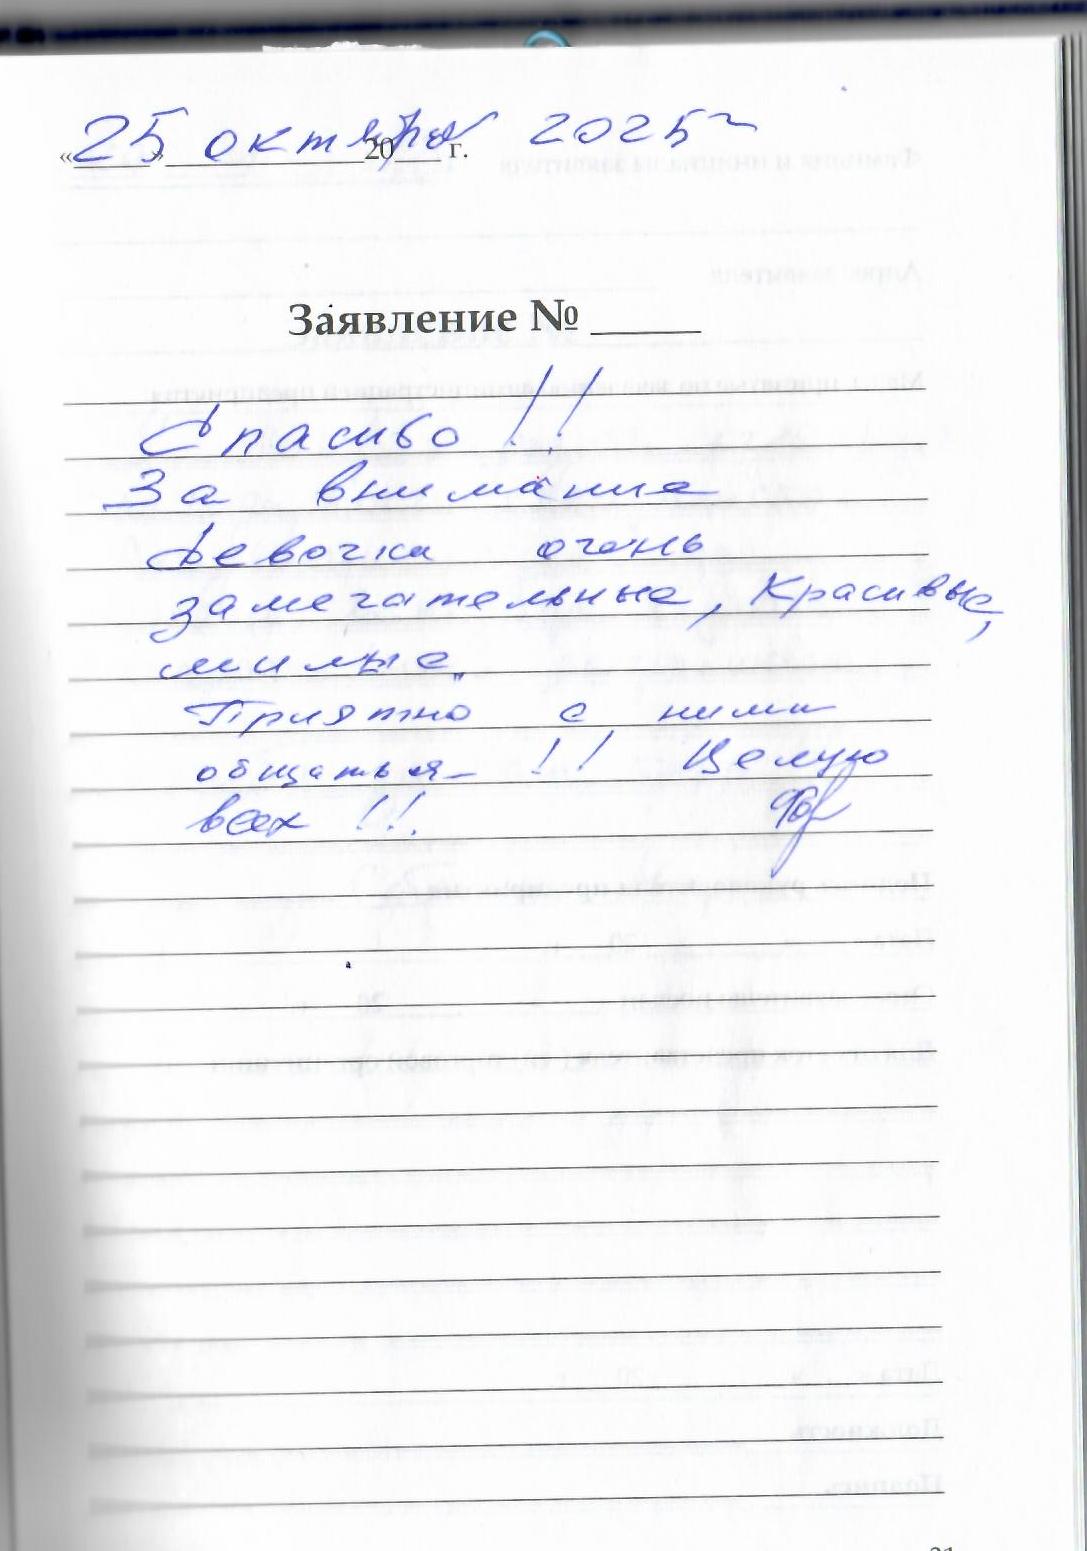 «25» октября 20 г. 2025
Заявление № 
Спасибо!!
За внимание
Девочки очень
замечательные, Красивые,
милые.
Приятно с ними
общаться !! Целую
всех !!!